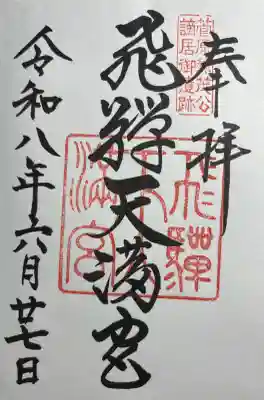 奉拝
菅原兼茂公
謫居御遺跡
飛騨天満宮
飛騨天満宮
令和八年六月廿七日